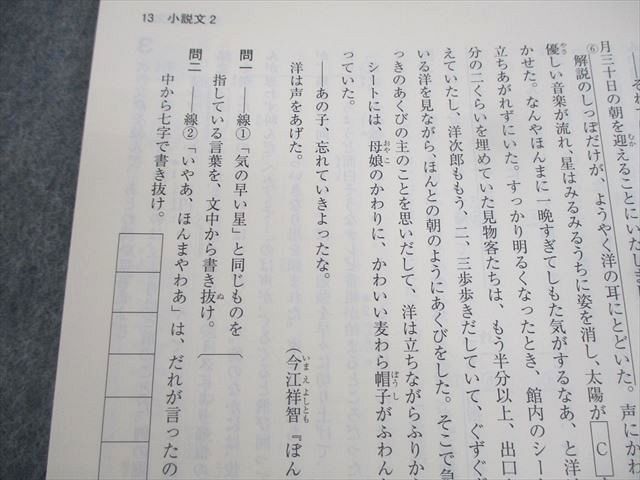 13 小説文2
――それ
月三十日の朝を迎えることにいたしまし
⑥解説のしっぽだけが、ようやく洋の耳にとどいた。声にかわ
優しい音楽が流れ、星はみるみるうちに姿を消し、太陽が C
かせた。なんやほんまに一晩すぎてしもた気がするなあ、と洋
立ちあがれずにいた。すっかり明るくなったとき、館内のシー
分の二くらいを埋めていた見物客たちは、もう半分以上、出口
えていたし、洋次郎ももう、二、三歩歩きだしていて、ぐずぐ
いる洋を見ながら、ほんとの朝のようにあくびをした。そこで急
っきのあくびの主のことを思いだして、洋は立ちながらふりか
シートには、母娘のかわりに、かわいい麦わら帽子がふわん
っていた。
――あの子、忘れていきよったな。
洋は声をあげた。
（今江祥智『ぼん
問一 ――線①「気の早い星」と同じものを
指している言葉を、文中から書き抜け。
問二 ――線②「いやあ、ほんまやわあ」は、だれが言ったの
中から七字で書き抜け。